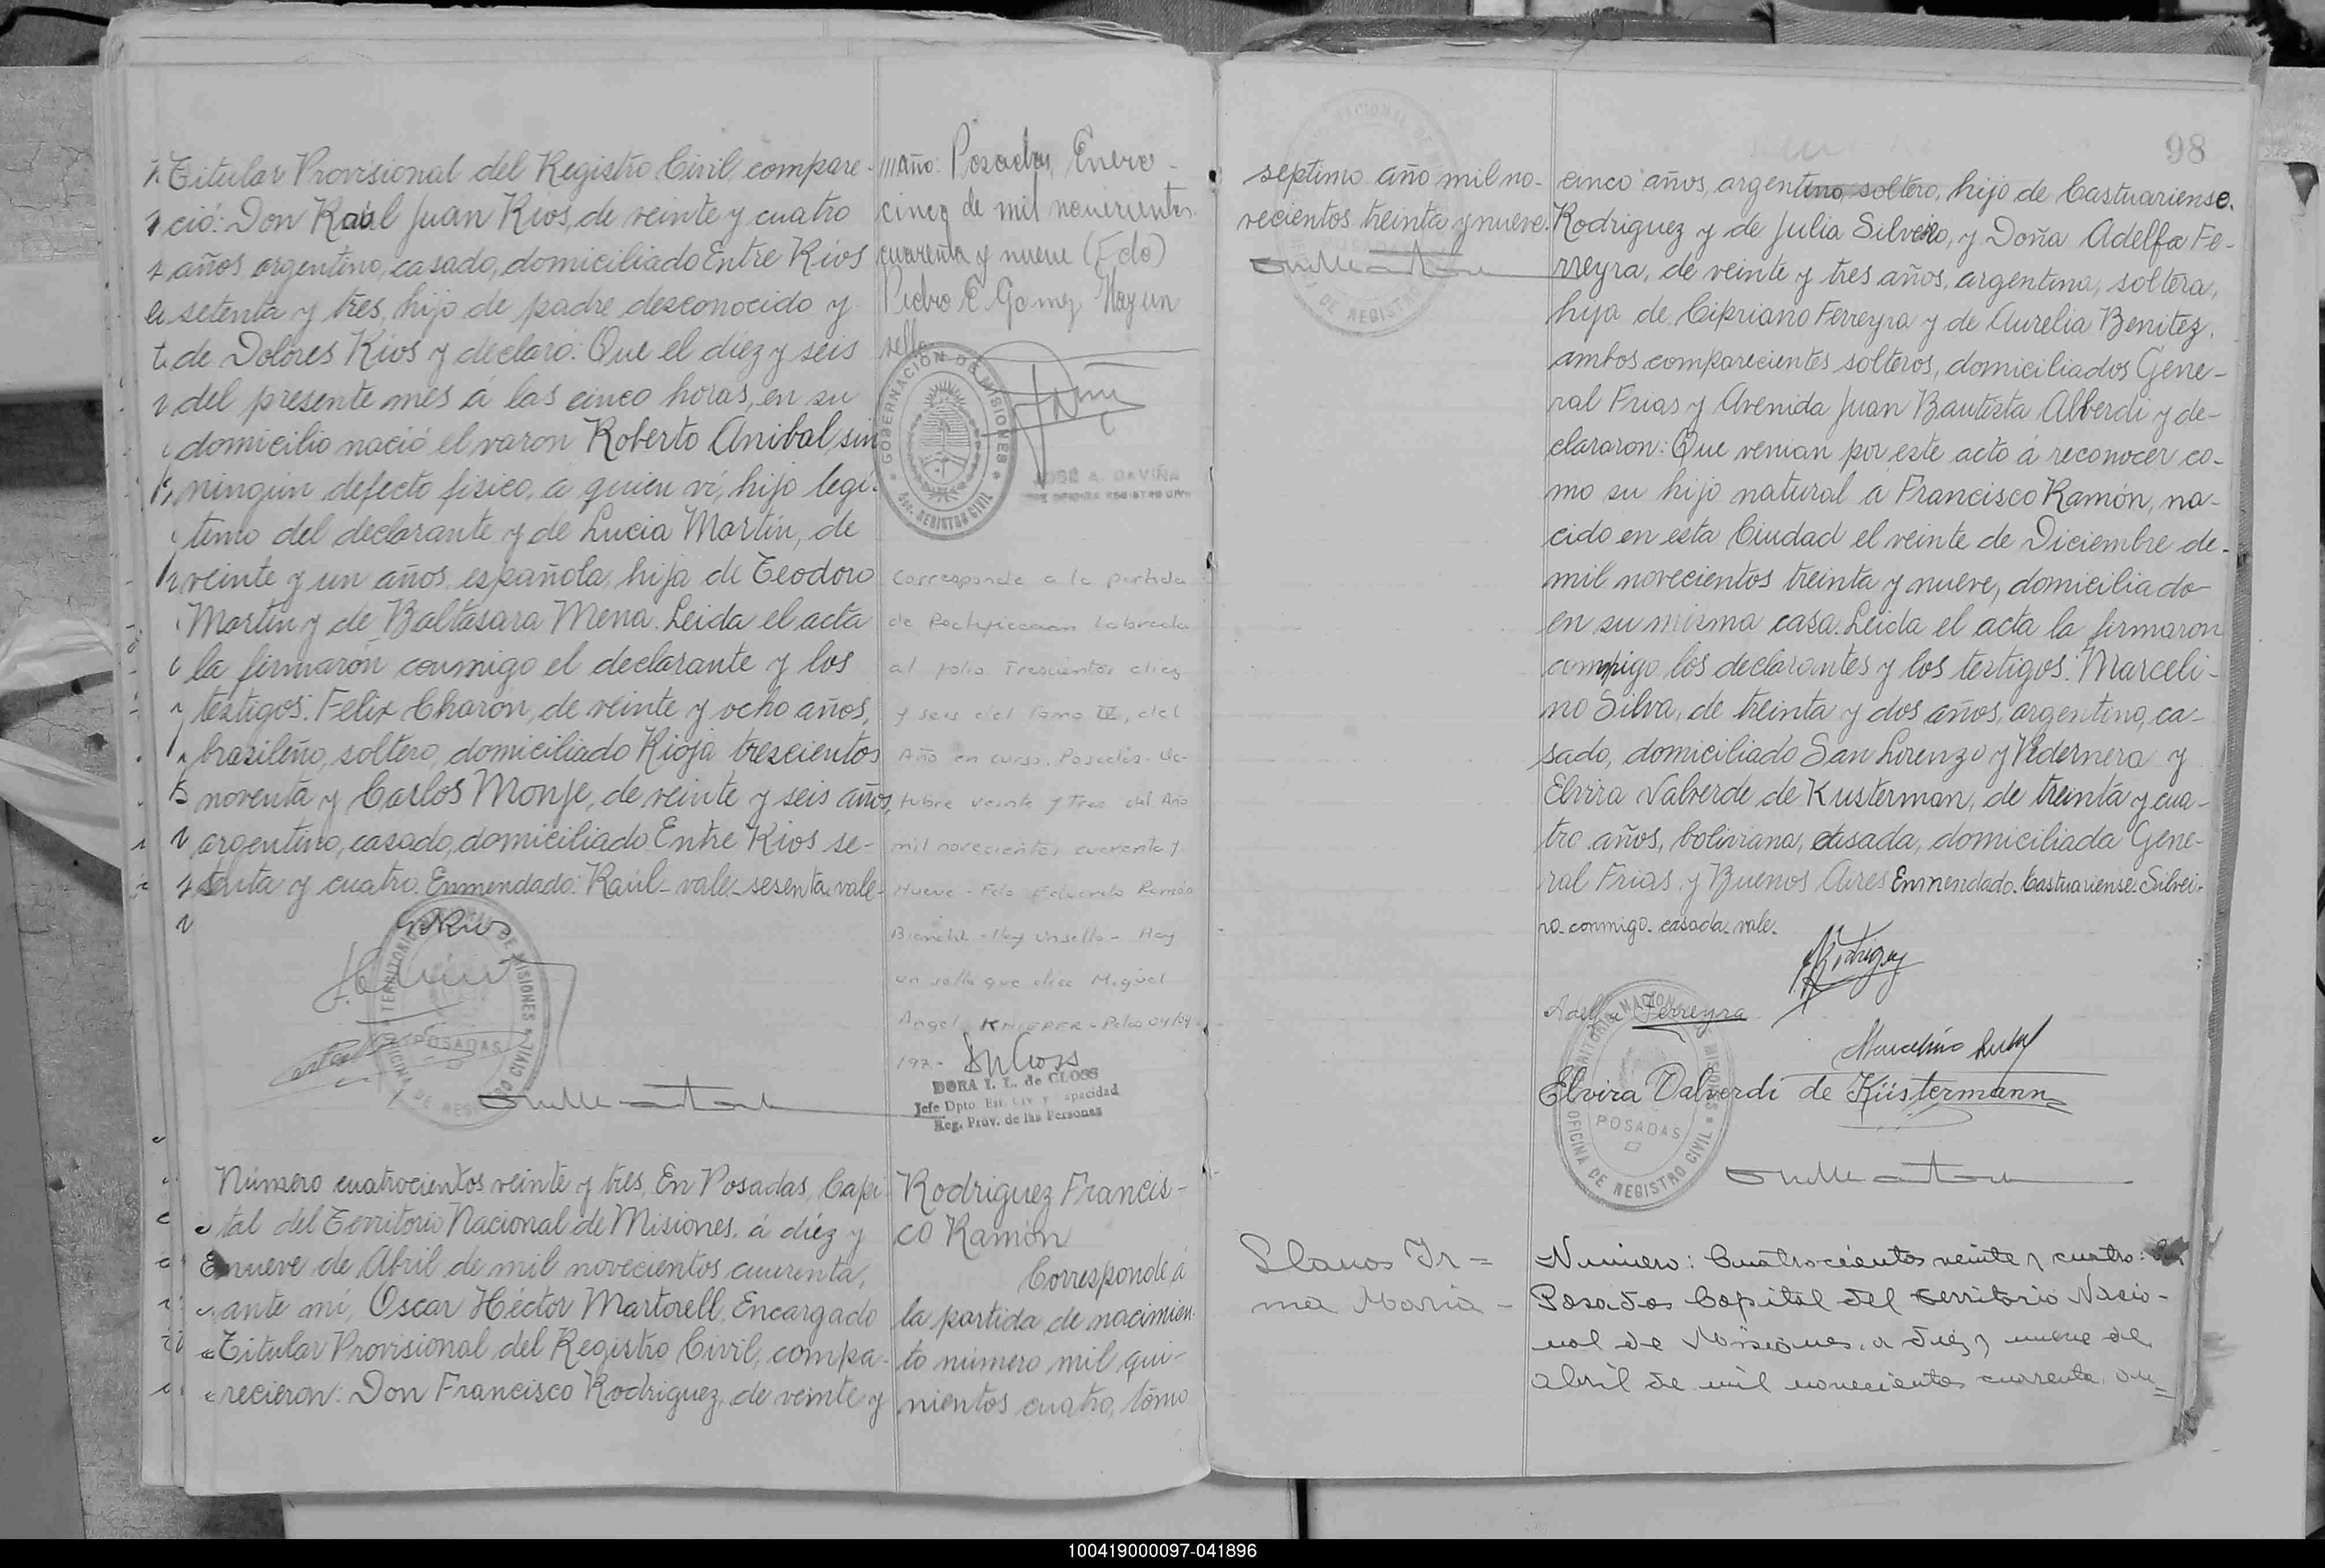 Titular Provisional del Registro Civil compare-
ció: Don Raúl Juan Rios, de veinte y cuatro
años argentino, casado, domiciliado Entre Rios
setenta y tres, hijo de padre desconocido y
de Dolores Rios y declaró: Que el diez y seis
del presente mes á las cinco horas, en su
domicilio nació el varon Roberto Anibal, sin
ningún defecto fisico, a quien ví, hijo legi-
timo del declarante y de Lucia Martín, de
veinte y un años, española, hija de Teodoro
Martín y de Baltasara Mena. Leida el acta
la firmarón conmigo el declarante y los
testigos: Felix Charón, de veinte y ocho años,
brasileño, soltero, domiciliado Rioja trescientos
noventa y Carlos Monje, de veinte y seis años,
argentino, casado, domiciliado Entre Rios se-
senta y cuatro. Enmendado: Raúl-vale-sesenta vale-
TERRITORIO NACIONAL DE MISIONES
POSADAS
OFICINA DE REGISTRO CIVIL
año: Posadas, Enero
cinco de mil novecientos
cuarenta y nueve (Fdo)
Pedro E Gomez Hay un
sello
GOBERNACIÓN DE MISIONES
Secc. REGISTRO CIVIL
JOSÉ A. DAVIÑA
JEFE OFICINA REGISTRO CIVIL
Corresponde a la partida
de Rectificacion labrada
al folio Trescientos diez
y seis del Tomo III, del
Año en curso. Posadas. Oc-
tubre veinte y Tres del Año
mil novecientos cuarenta y
Nueve - Fdo Eduardo Ramón
Bianchi - Hay un sello - Hay
un sello que dice Miguel
Angel KNIEPER - Pdas 04/04
192-
DORA I. L. de CLOSS
Jefe Dpto. Est. Civ. y Capacidad
Reg. Prov. de las Personas
Número cuatrocientos veinte y tres. En Posadas, Capi-
tal del Territorio Nacional de Misiones, á diéz y
nueve de Abril de mil novecientos cuarenta,
ante mí, Oscar Héctor Martorell, Encargado
Titular Provisional del Registro Civil, compa-
recieron: Don Francisco Rodriguez, de veinte y
Rodriguez Francis-
co Ramón
Corresponde á
la partida de nacimien-
to número mil qui-
nientos cuatro, tomo
septimo año mil no-
vecientos treinta y nueve.
98
cinco años, argentino, soltero, hijo de Castuariense
Rodriguez y de Julia Silveiro, y Doña Adelfa Fe-
rreyra, de veinte y tres años, argentina, soltera,
hija de Cipriano Ferreyra y de Aurelia Benitez,
ambos comparecientes solteros, domiciliados Gene-
ral Frias y Avenida Juan Bautista Alberdi y de-
clararon: Que venian por este acto á reconocer co-
mo su hijo natural a Francisco Ramón, na-
cido en esta Ciudad el veinte de Diciembre de
mil novecientos treinta y nueve, domiciliado
en su misma casa. Leida el acta la firmaron
conmigo los declarantes y los testigos: Marceli-
no Silva, de treinta y dos años, argentino, ca-
sado, domiciliado San Lorenzo y Pedernera y
Elvira Valverde de Kusterman, de treinta y cua-
tro años, boliviana, casada, domiciliada Gene-
ral Frias y Buenos Aires Enmendado. Castuariense. Silvei-
ro-conmigo-casada-vale-
Adelfa Ferreyra
Marcelino Silva
Elvira Valverdi de Küstermann
TERRITORIO NACIONAL DE MISIONES
POSADAS
OFICINA DE REGISTRO CIVIL
Llanos Ir=
ma Maria-
Numero: Cuatrocientos veinte y cuatro: En
Posadas Capital del territorio Nacio-
nal de Misiones, a diez y nueve de
abril de mil novecientos cuarenta, an=
100419000097-041896